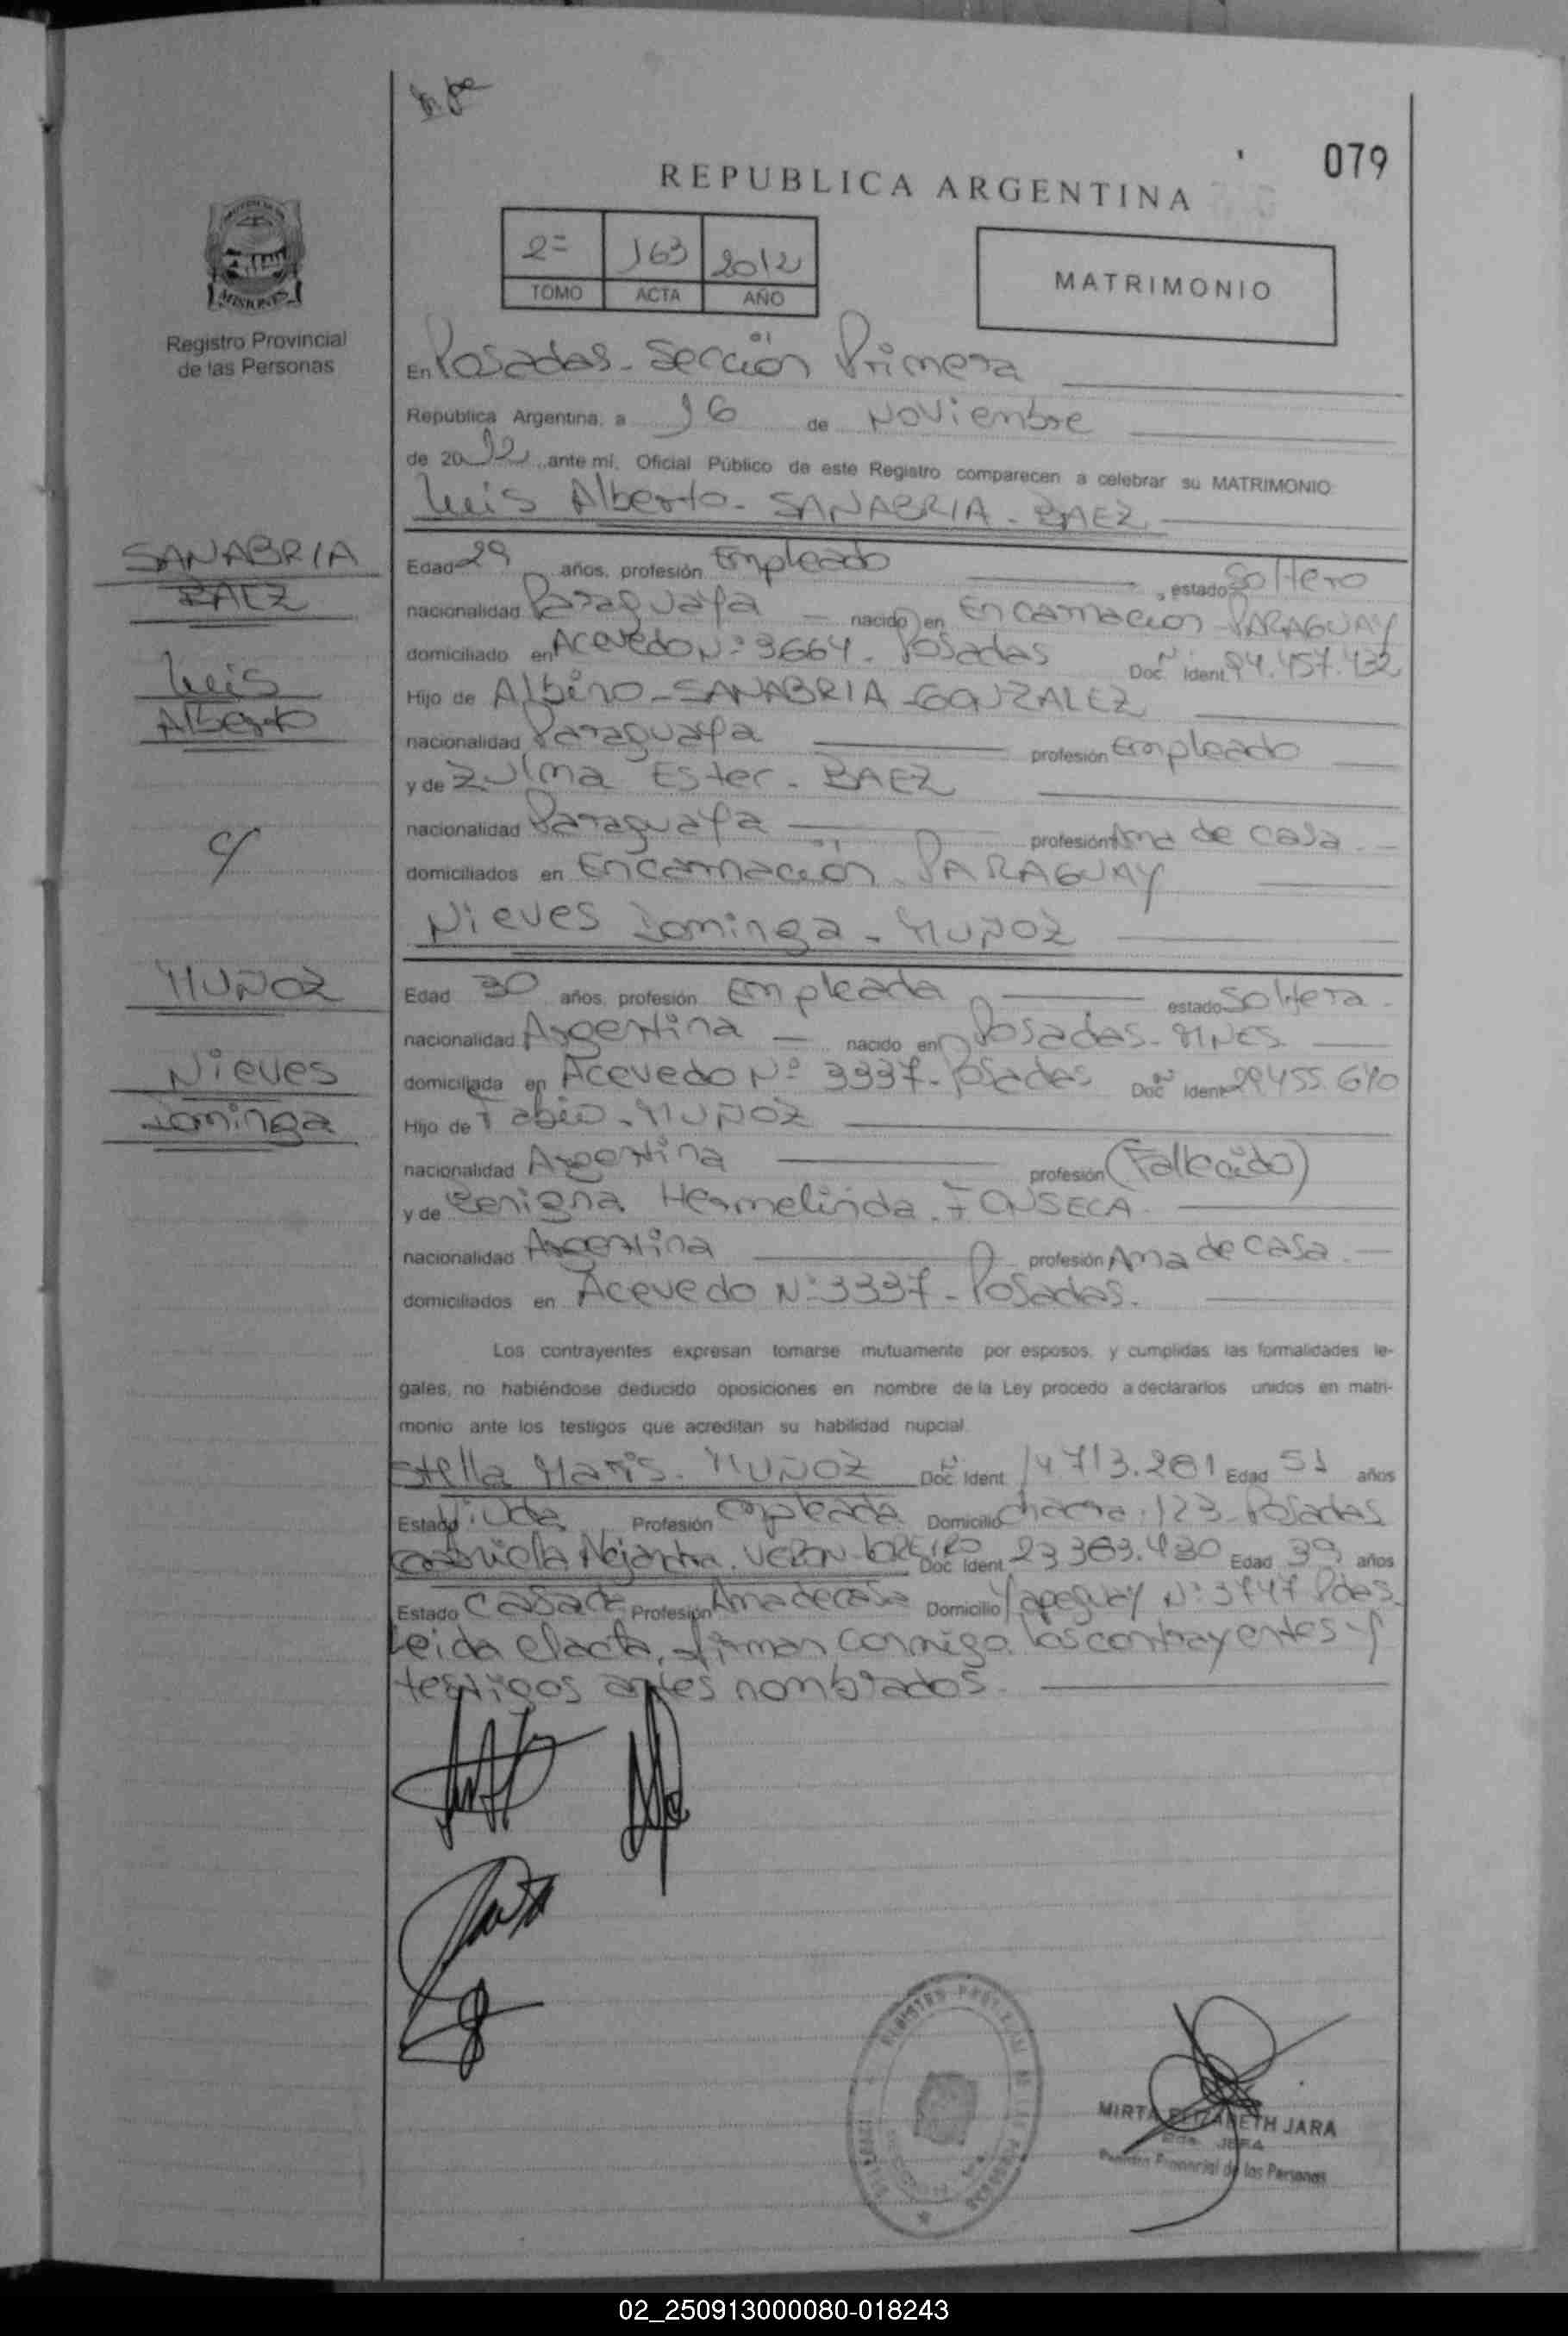 079
REPUBLICA ARGENTINA
2= 163 2012
TOMO ACTA AÑO
MATRIMONIO
MISIONES
Registro Provincial
de las Personas
En Posadas - Sección Primera
República Argentina, a 16 de Noviembre
de 2012, ante mi, Oficial Público de este Registro comparecen a celebrar su MATRIMONIO
Luis Alberto - SANABRIA - BAEZ
SANABRIA
BAEZ
Luis
Alberto
c/
MUÑOZ
Nieves
Dominga
Edad 29 años, profesión Empleado, estado Soltero
nacionalidad Paraguaya nacido en Encarnación - PARAGUAY
domiciliado en Acevedo Nº 3664 - Posadas Doc. Ident. Nº 94.457.432
Hijo de Albino - SANABRIA - GONZALEZ
nacionalidad Paraguaya profesión Empleado
y de Zulma Ester - BAEZ
nacionalidad Paraguaya profesión Ama de casa.
domiciliados en Encarnación - PARAGUAY
Nieves Dominga - MUÑOZ
Edad 30 años, profesión Empleada estado Soltera.
nacionalidad Argentina nacido en Posadas - MNES.
domiciliada en Acevedo Nº 3337 - Posadas Doc. Ident. Nº 29.455.670
Hijo de Fabio - MUÑOZ
nacionalidad Argentina profesión (Fallecido)
y de Benigna Hermelinda - FONSECA.
nacionalidad Argentina profesión Ama de casa.
domiciliados en Acevedo Nº 3337 - Posadas.
Los contrayentes expresan tomarse mutuamente por esposos, y cumplidas las formalidades le-
gales, no habiéndose deducido oposiciones en nombre de la Ley procedo a declararlos unidos en matri-
monio ante los testigos que acreditan su habilidad nupcial.
Stella Maris - MUÑOZ Doc. Ident. Nº 14.713.281 Edad 51 años
Estado Viuda Profesión empleada Domicilio chacra 123 - Posadas
Gabriela Alejandra - VERON - LOREIRO Doc. Ident. 23.383.430 Edad 39 años
Estado Casada Profesión Ama de casa Domicilio Yapeguay Nº 3747 Pdas.
Leida el acta, firman conmigo los contrayentes y
testigos antes nombrados.
MIRTA ELIZABETH JARA
JEFA
Registro Provincial de las Personas
02_250913000080-018243